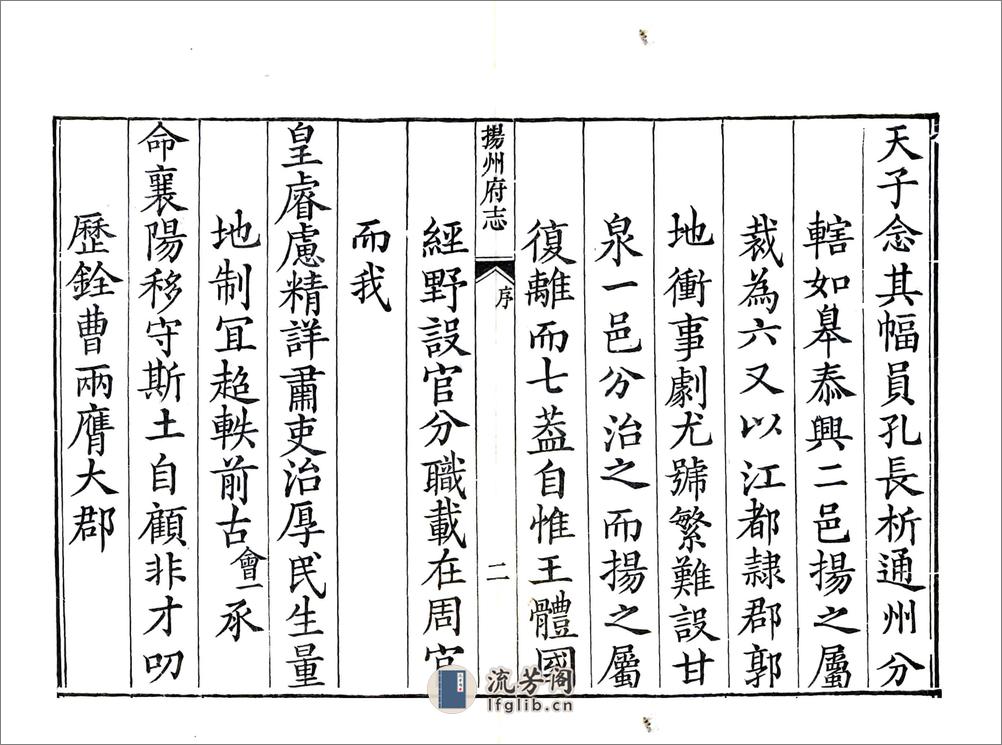 天子念其幅員孔長析通州分
轄如臯泰興二邑揚之屬
裁為六又以江都隷郡郭
地衝事劇尤號繁難設甘
泉一邑分治之而揚之屬
復離而七葢自惟王體國
揚州府志
序
二
經野設官分職載在周官
而我
皇睿慮精詳肅吏治厚民生量
地制冝超軼前古會一承
命襄陽移守斯土自顧非才叨
歷銓曹兩膺大郡
流芳阁
lfglib.cn